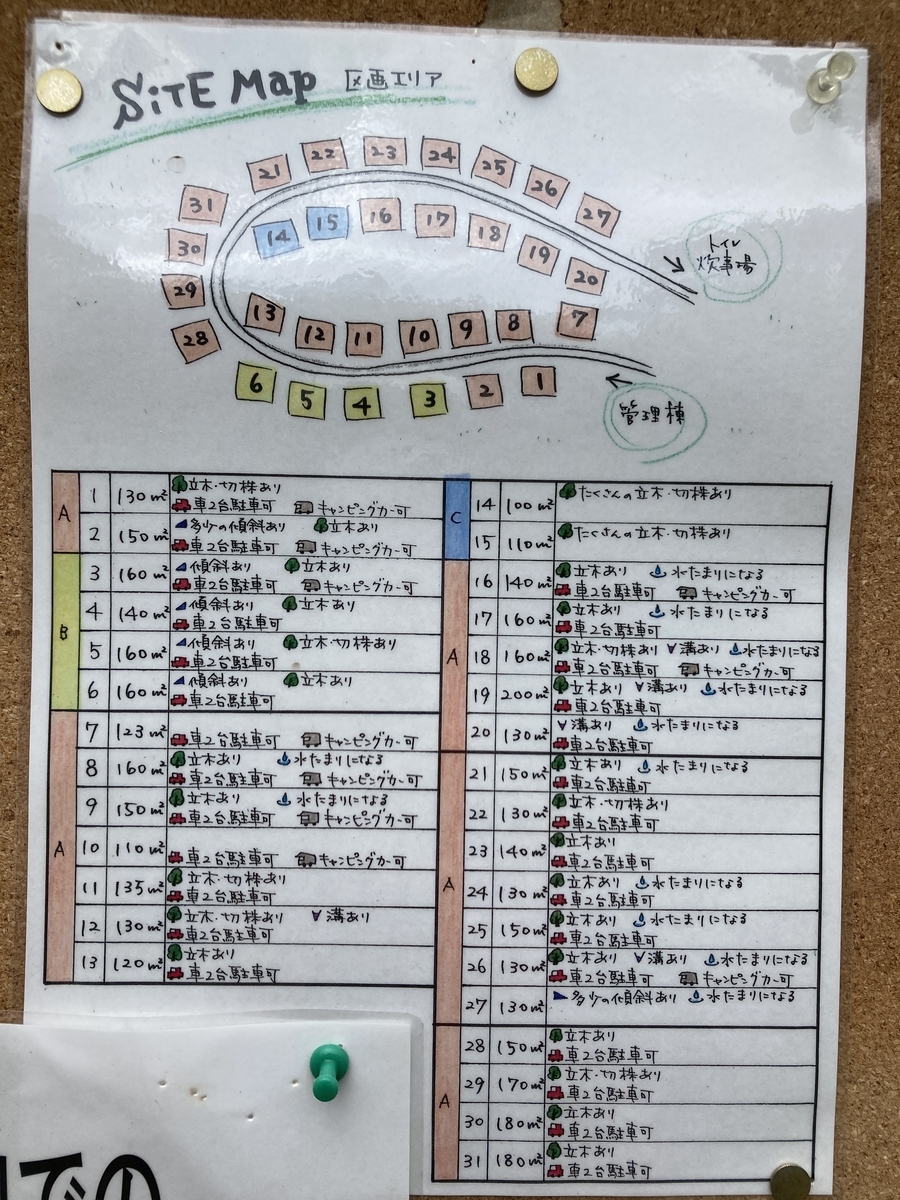 SiTE Map 区画エリア
21 22 23 24 25 26 27
31 30 29 28
14 15 16 17 18 19 20
13 12 11 10 9 8 7
6 5 4 3 2 1
トイレ
炊事場
管理棟
A
1 130m² 立木・切株あり
車2台駐車可 キャンピングカー可
2 150m² 多少の傾斜あり 立木あり
車2台駐車可 キャンピングカー可
B
3 160m² 傾斜あり 立木あり
車2台駐車可 キャンピングカー可
4 140m² 傾斜あり 立木あり
車2台駐車可
5 160m² 傾斜あり 立木・切株あり
車2台駐車可
6 160m² 傾斜あり 立木あり
車2台駐車可
A
7 123m² 車2台駐車可 キャンピングカー可
8 160m² 立木あり 水たまりになる
車2台駐車可 キャンピングカー可
9 150m² 立木あり 水たまりになる
車2台駐車可 キャンピングカー可
10 110m² 車2台駐車可 キャンピングカー可
11 135m² 立木・切株あり
車2台駐車可
12 130m² 立木・切株あり 溝あり
車2台駐車可
13 120m² 立木あり
車2台駐車可
C
14 100m² たくさんの立木・切株あり
15 110m² たくさんの立木・切株あり
A
16 140m² 立木あり 水たまりになる
車2台駐車可 キャンピングカー可
17 160m² 立木あり 水たまりになる
車2台駐車可
18 160m² 立木・切株あり 溝あり 水たまりになる
車2台駐車可 キャンピングカー可
19 200m² 立木あり 溝あり 水たまりになる
車2台駐車可
20 130m² 溝あり 水たまりになる
車2台駐車可
A
21 150m² 立木あり 水たまりになる
車2台駐車可
22 130m² 立木・切株あり
車2台駐車可
23 140m² 立木あり
車2台駐車可
24 130m² 立木あり 水たまりになる
車2台駐車可
25 150m² 立木あり 水たまりになる
車2台駐車可
26 130m² 立木あり 溝あり 水たまりになる
車2台駐車可 キャンピングカー可
27 130m² 多少の傾斜あり 水たまりになる
A
28 150m² 立木あり
車2台駐車可
29 170m² 立木・切株あり
車2台駐車可
30 180m² 立木あり
車2台駐車可
31 180m² 立木あり
車2台駐車可
での